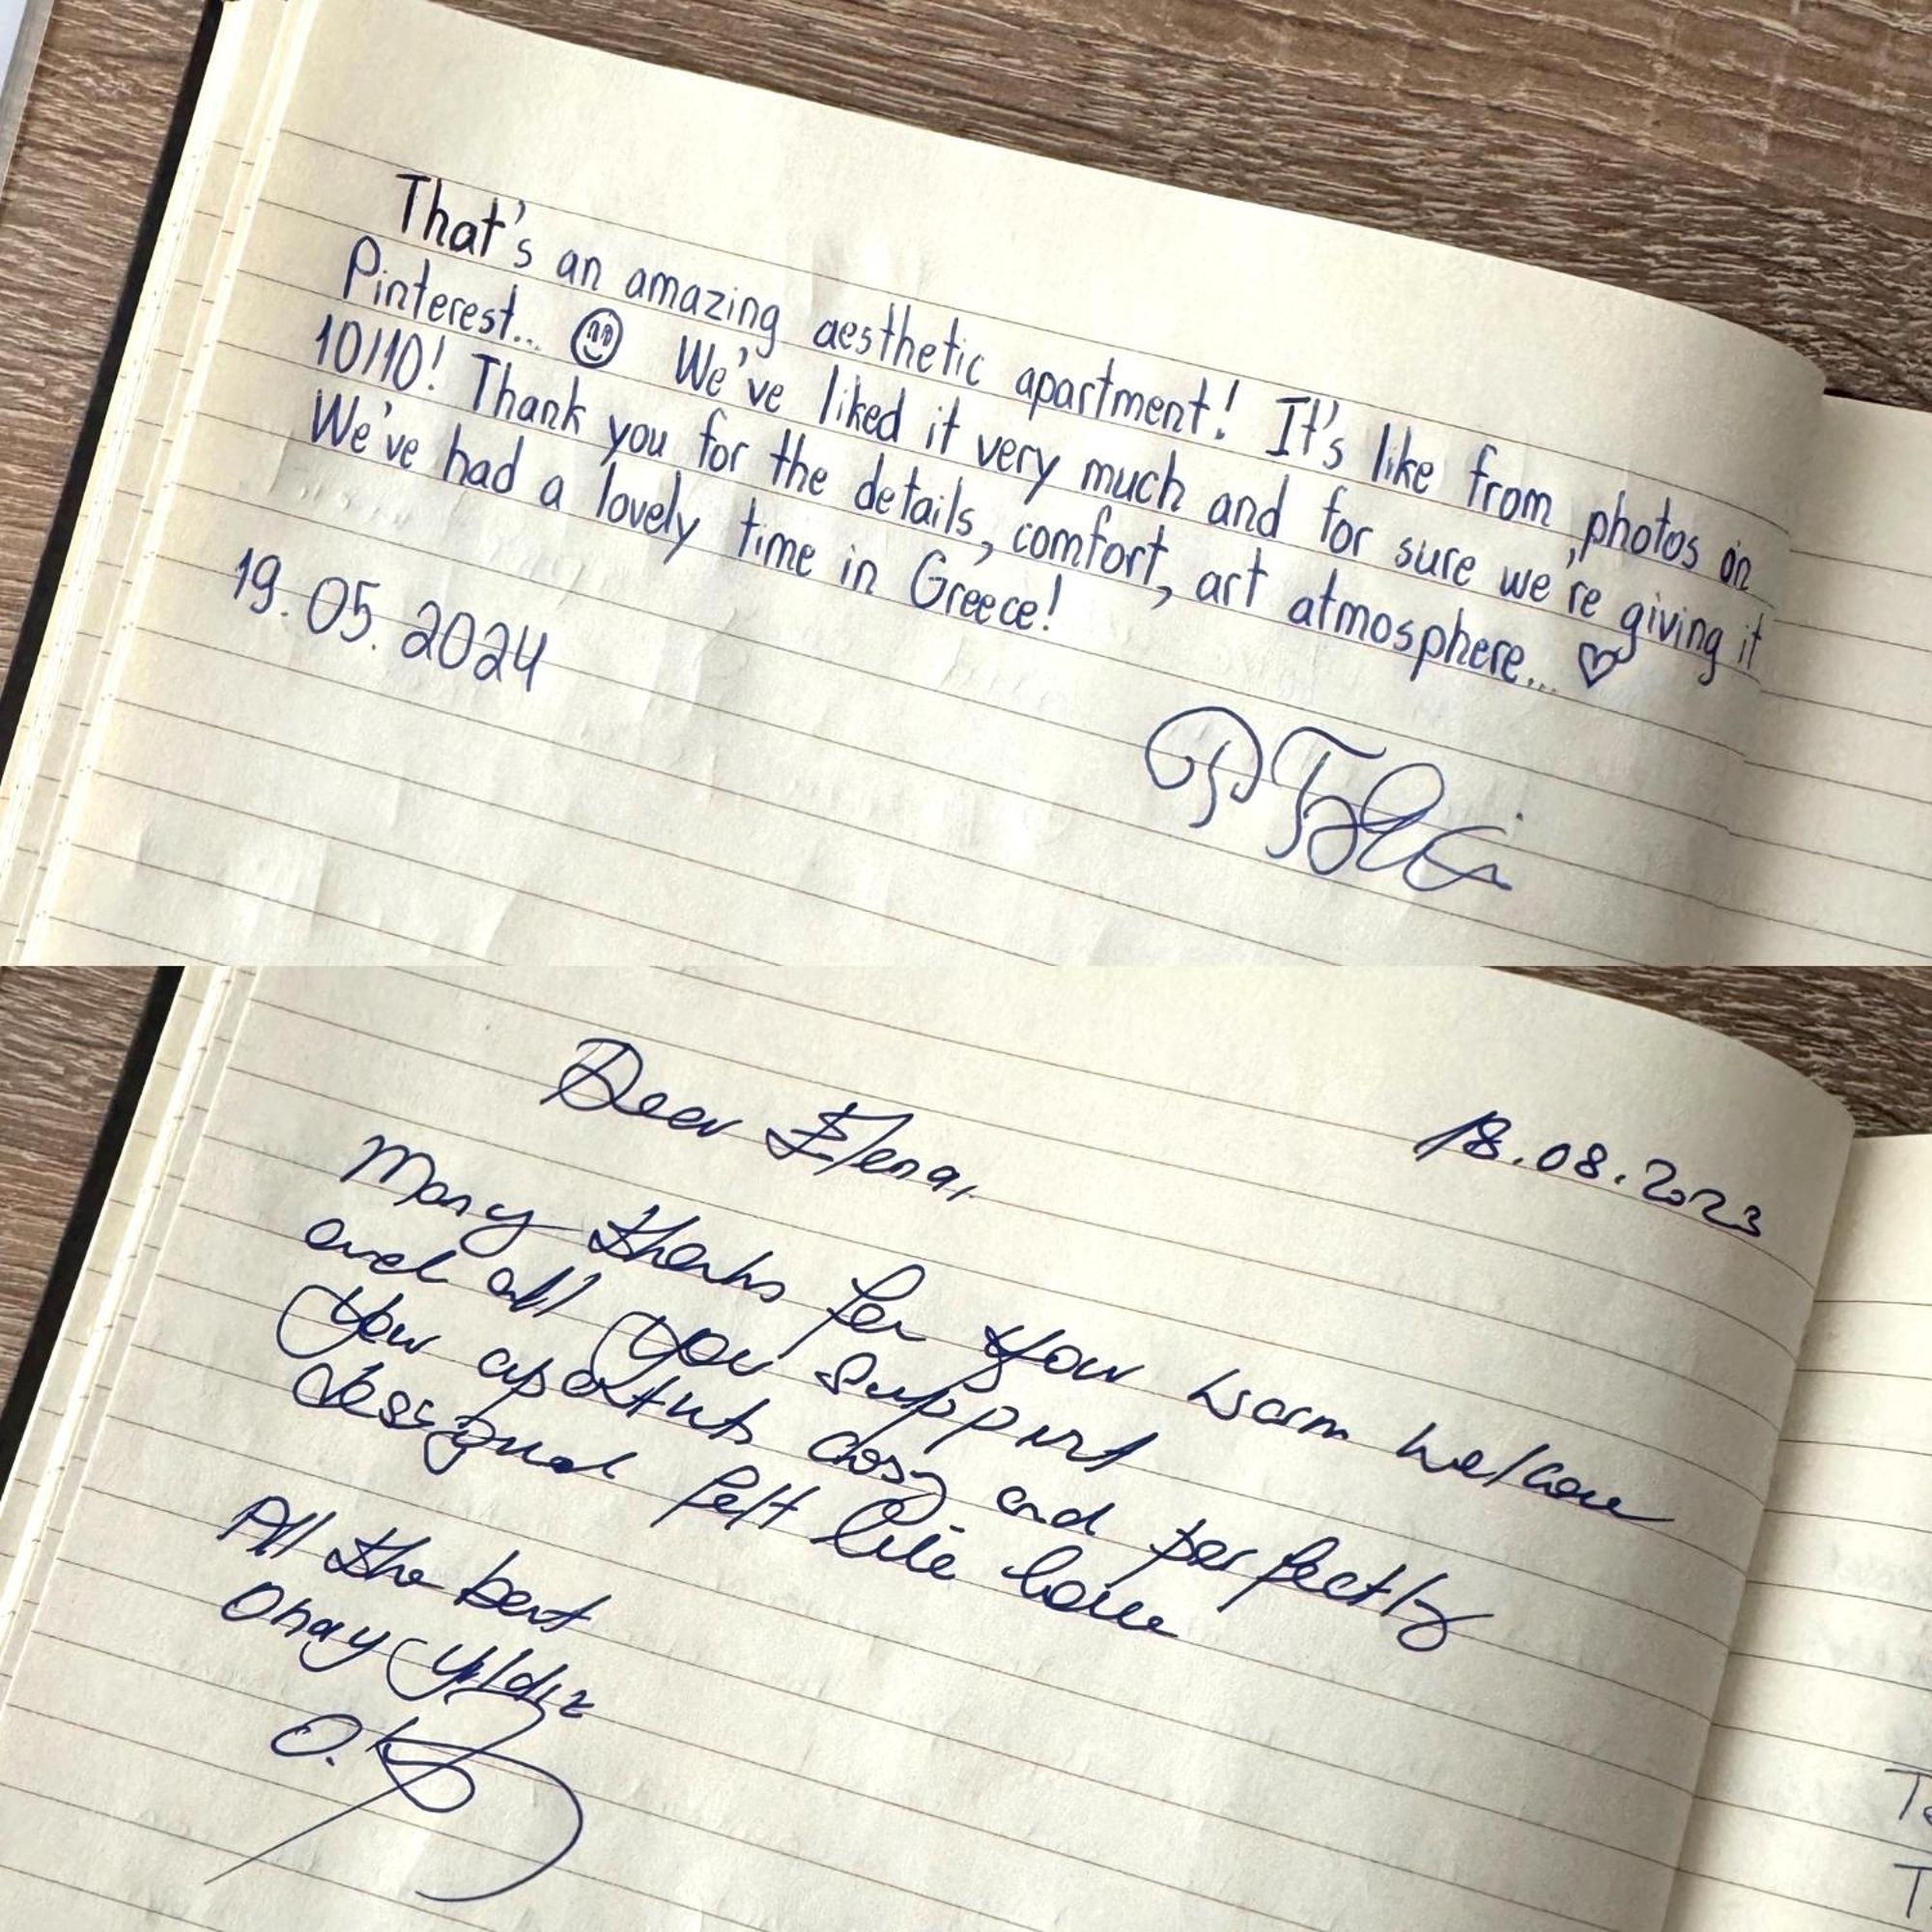 That's an amazing aesthetic apartment! It's like from photos on
Pinterest... We've liked it very much and for sure we're giving it
10/10! Thank you for the details, comfort, art atmosphere... ♡
We've had a lovely time in Greece!
19.05.2024
18.08.2023
Dear Elena,
Many thanks for your warm welcome
and all you support
Your apartnts cosy and perfectly
designed felt like home
All the best
Onay Yildiz
O.